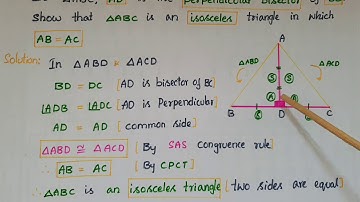 In ΔABC, AD is the perpendicular bisector of BC.
Show that ΔABC is an isosceles triangle in which
AB = AC
Solution: In ΔABD & ΔACD
BD = DC [AD is bisector of BC]
∠ADB = ∠ADC [AD is Perpendicular]
AD = AD [common side]
ΔABD ≅ ΔACD [By SAS congruence rule]
∴ AB = AC [By CPCT]
∴ ΔABC is an isosceles triangle [two sides are equal]
A
ΔABD
ΔACD
S S
A A
B S D S C